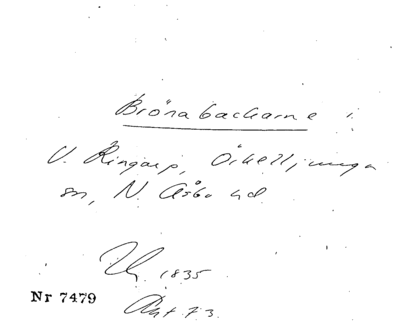 Brönabackarne i
V. Ringarp, Örkelljunga
sn, N. Åsbo hd
1835
Nr 7479
Akt 73